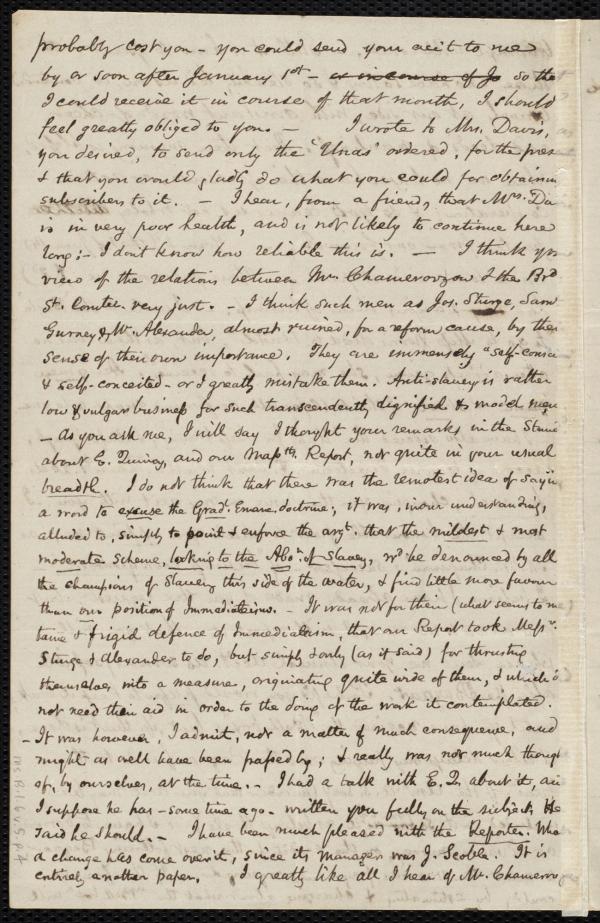 probably cost you - you could send your acc't to me
by or soon after January 1st - or in course of Ja so tha
I could receive it in course of that month, I should
feel greatly obliged to you. - I wrote to Mrs. Davis,
you desired, to send only the 'Unas' ordered, for the pres
& that you would gladly do what you could for obtainin
subscribers to it. - I hear, from a friend, that Mrs. Da
is in very poor health, and is not likely to continue here
long; - I don't know how reliable this is. - I think yr
view of the relations between Mr. Chamerovzow & the Brd
St. Comtee. very just. - I think such men as Jos. Sturge, Sam
Gurney, & Wm. Alexander, almost ruined, for a reform cause, by their
sense of their own importance. They are immensely "self-consc
& self-conceited - or I greatly mistake them. Anti-slavery is rather
low & vulgar business for such transcendently dignified & model men
- As you ask me, I will say I thought your remarks in the Stand
about E. Quincy, and our Massts. Report, not quite in your usual
breadth. I do not think that there was the remotest idea of sayin
a word to excuse the Grad. Emanc. doctrine; it was, in our understanding,
alluded to, simply to point & enforce the argt. that the mildest & most
moderate scheme, looking to the Abon. of Slavery, wd. be denounced by all
the champions of Slavery this side of the water, & find little more favour
than our position of Immediateism. - It was not for their (what seems to me
tame & frigid defence of Immediatism, that our Report took Messrs.
Sturge & Alexander to do, but simply & only (as it said) for thrusting
themselves into a measure, originating quite wide of them, & which d
not need their aid in order to the doing of the work it contemplated.
- It was however, I admit, not a matter of much consequence, and
might as well have been passed by; & really was not much though
of, by ourselves, at the time. - I had a talk with E. Q. about it, an
I suppose he has - some time ago - written you fully on the subject. He
said he should. - I have been much pleased with the Reporter. Wha
a change has come over it, since its manager was J. Scoble. It is
entirely another paper. I greatly like all I hear of Mr. Chamerov